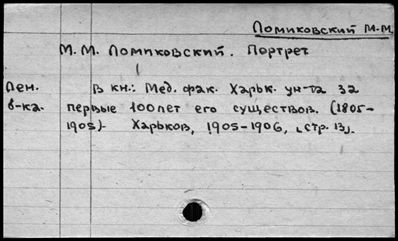 Ломиковский М.М.
М.М. Ломиковский. Портрет
Лен. В кн.: Мед. фак. Харьк. ун-та за
б-ка. первые 100 лет его существов. (1805-
1905). Харьков, 1905-1906, [стр. 13].